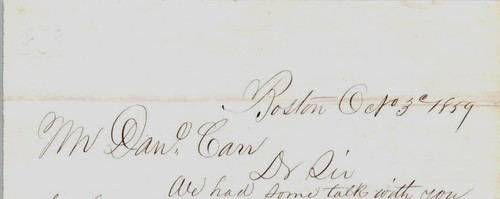 Boston Oct 3d 1859
Mr Danl. Carr
Dr Sir
We had some talk with you